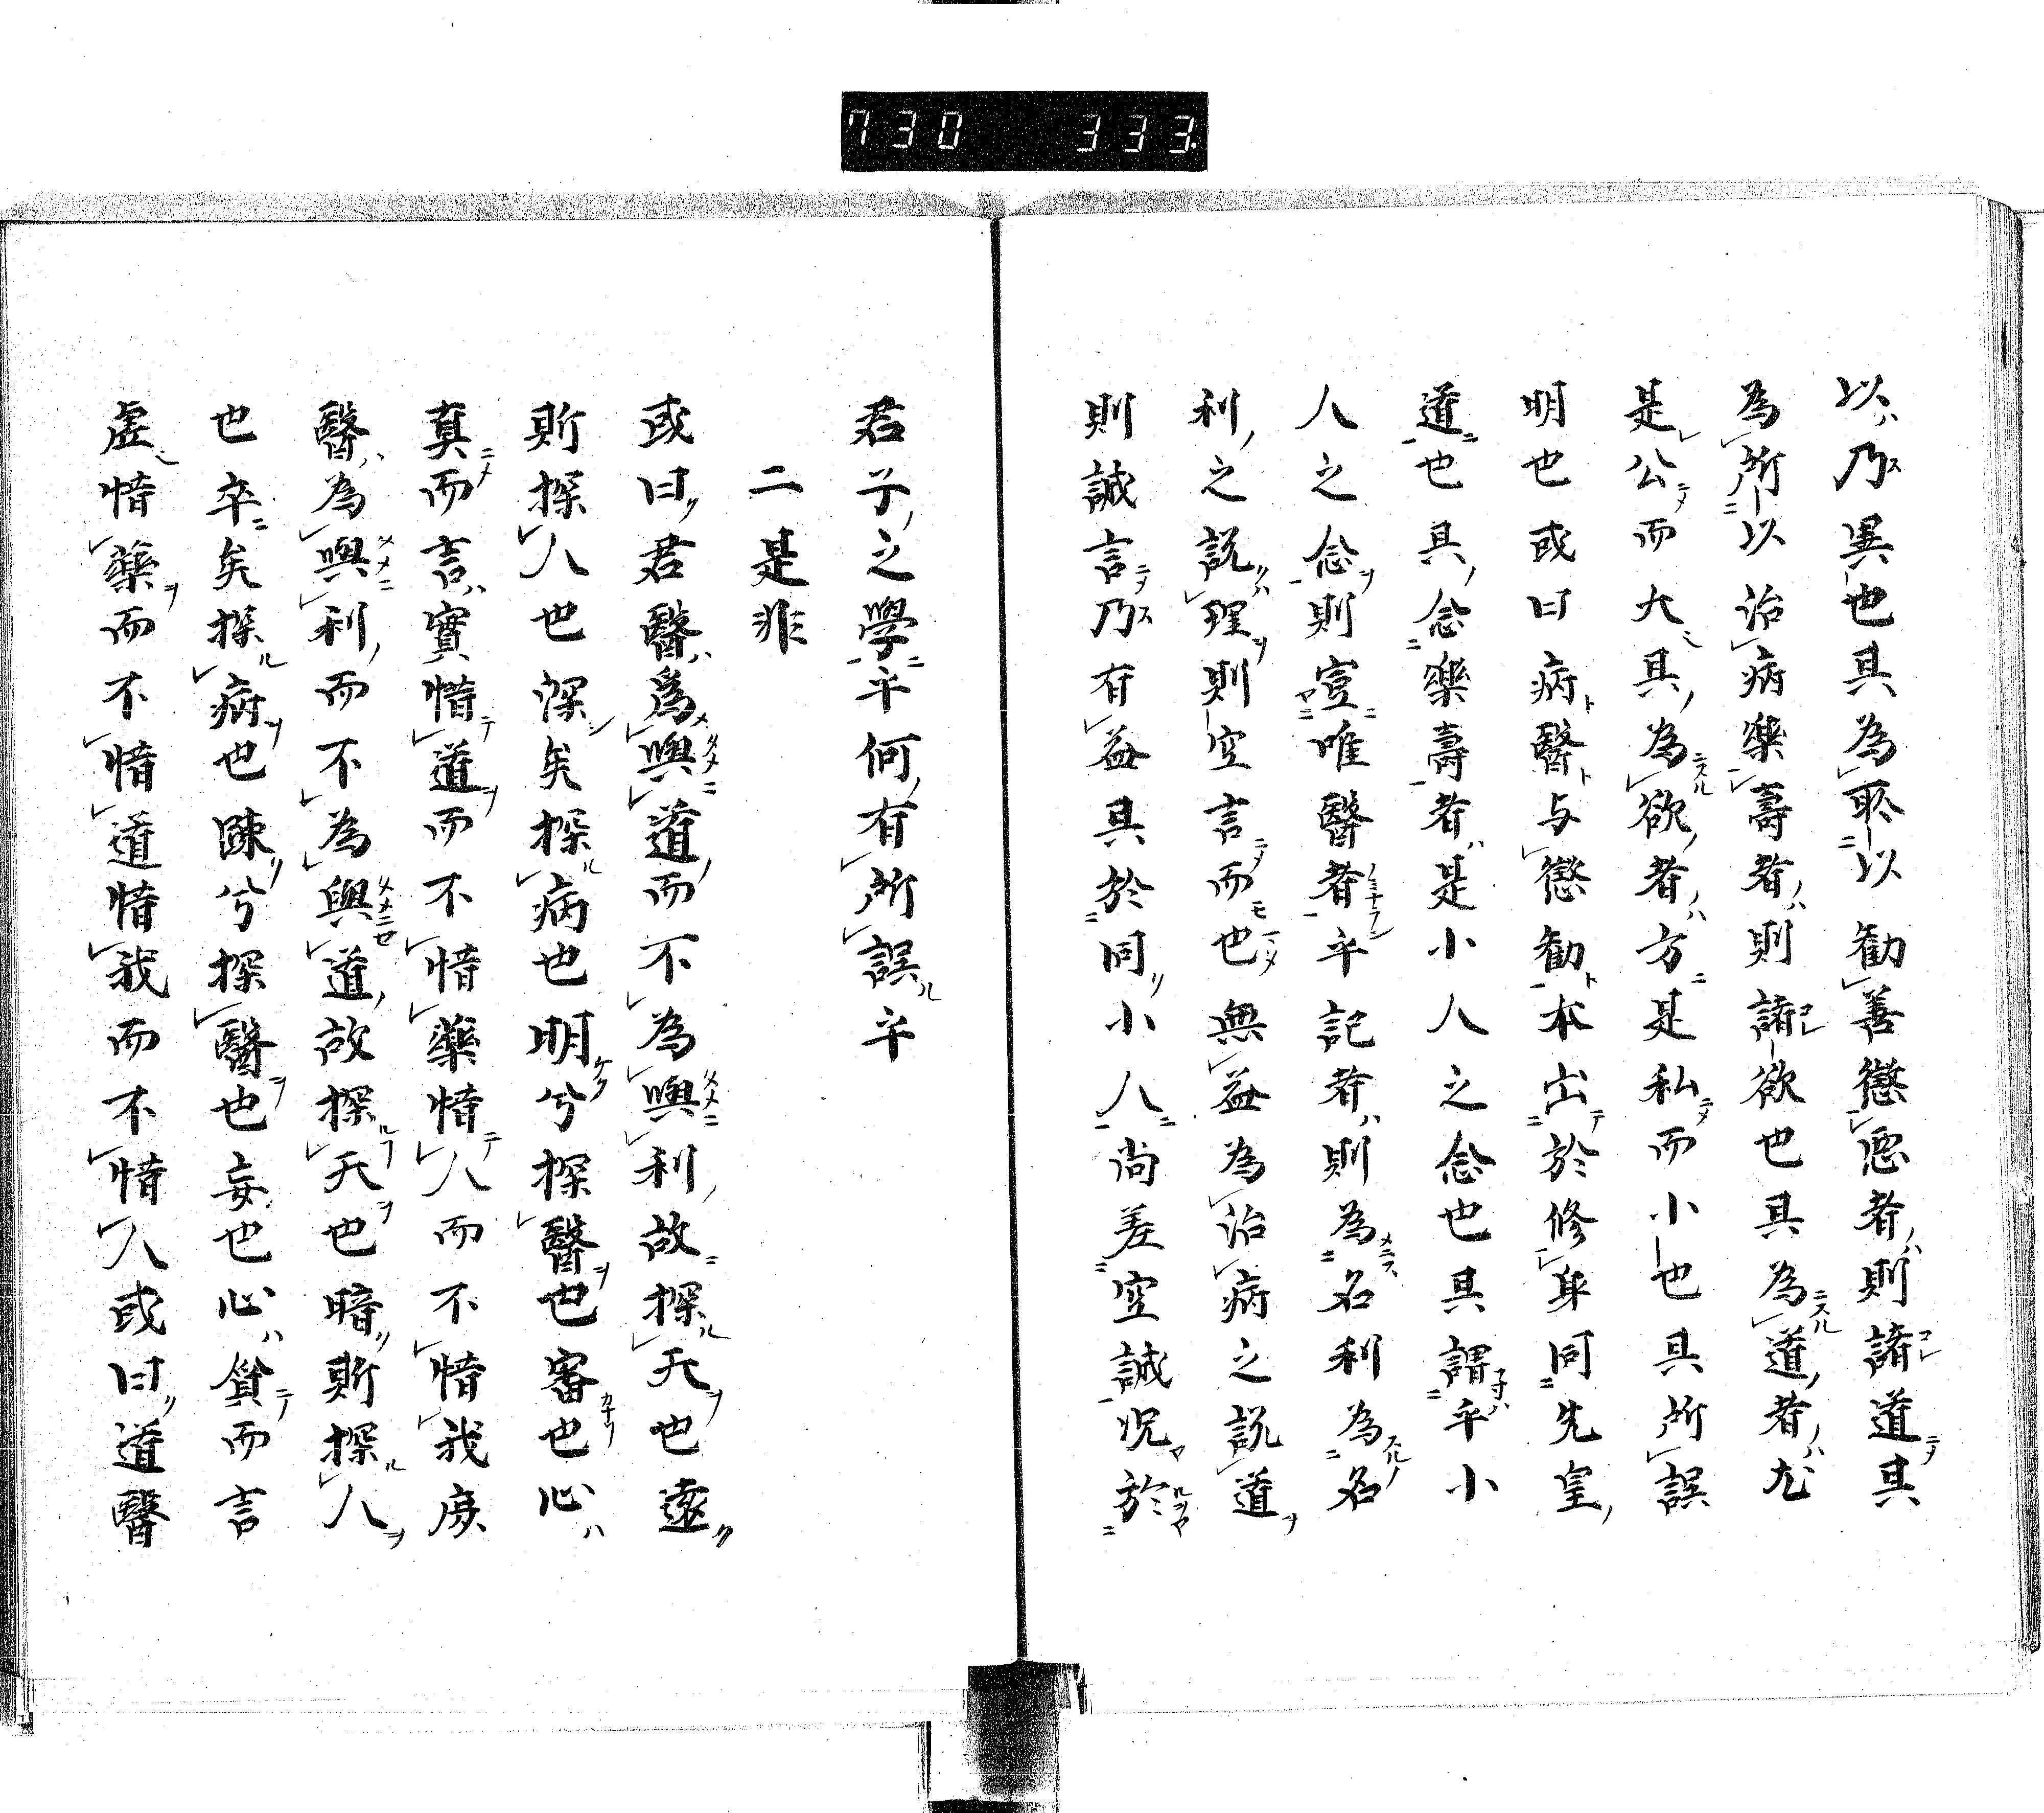 730 333.
以乃異也其為所以勧善懲悪者則諸道其
為所以治病楽壽者則諸欲也其為道者尤
是公而大其為欲者方是私而小也其所誤
明也或曰病醫与懲勧本出於修身同先皇
道也其念楽壽者是小人之念也其謂乎小
人之念則豈唯醫者乎記者則為名利為名
利之説理則空言而也無益為治病之説道
則誠言乃有益具於同小人尚差空誠况於
君子之學乎何有所誤乎
二是非
或曰君醫為興道而不為興利故探天也遠
斯探人也深矣探病也明兮探醫也審也心
真而言實惜道而不惜藥惜人而不惜我庚
醫為興利而不為興道故探天也暗斯探人
也卒矣探病也踈兮探醫也妄也心貧而言
虚惜藥而不惜道惜我而不惜人或曰道醫